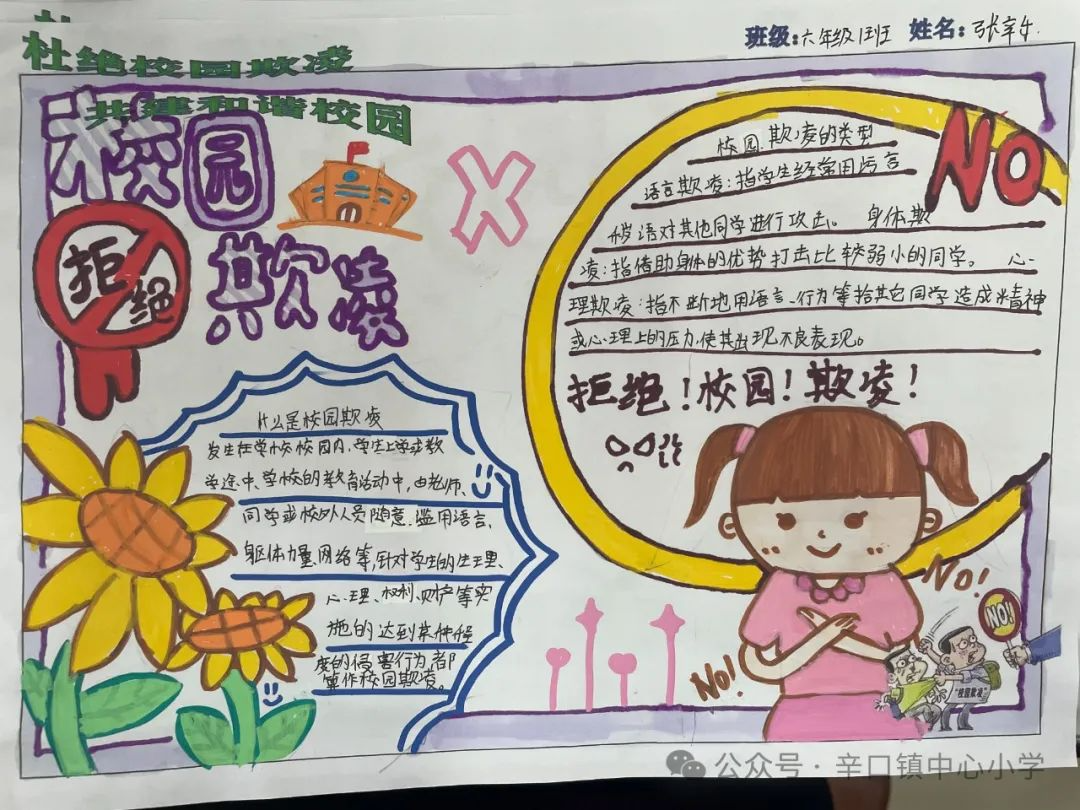 杜绝校园欺凌
共建和谐校园
班级:六年级1班 姓名:
校园
欺凌
拒绝
什么是校园欺凌
发生在学校校园内、学生上学或放
学途中、学校的教育活动中,由老师、
同学或校外人员随意滥用语言、
躯体力量、网络等,针对学生的生理、
心理、权利、财产等实
施的达到某种程
度的侵害行为,都
算作校园欺凌。
NO
校园欺凌的类型
语言欺凌:指学生经常用污言
秽语对其他同学进行攻击。 身体欺
凌:指借助身体的优势打击比较弱小的同学。 心
理欺凌:指不断地用语言、行为等给其它同学造成精神
或心理上的压力,使其出现不良表现。
拒绝!校园!欺凌!
No!
NO!
No!
"校园欺凌"
公众号·辛口镇中心小学